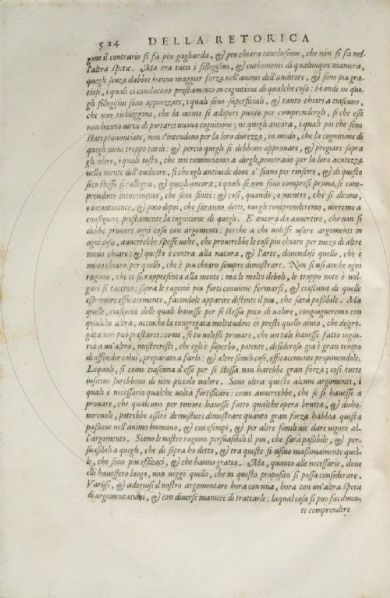 524 DELLA RETORICA
gono il contrario si fa piu gagliarda, & piu chiara conclusione, che non si fa nel-
l'altra spetie. Ma tra tutti i sillogismi, & enthimemi di qualunque maniera,
quegli senza dubbio hanno maggior forza nell'animo dell'auditore, & sono piu gra-
tiosi, i quali ci conducono prestamente in cognitione di qualche cosa: la onde in que
gli sillogismi sono apprezzati, i quali sono superficiali, & tanto chiari a ciascuno,
che non richieggono, che la mente si adopri punto per comprendergli, si che essi
non hanno virtù di portarci nuova cognitione: ne quegli ancora, i quali poi che sono
stati pronuntiati, non s'intendono per la loro durezza, in modo, che la cognitione di
quegli viene troppo tardi: & perciò quegli si debbono approvare, & pregiare sopra
gli altri, i quali tosto, che noi cominciamo a dirgli, penetrano per la loro acutezza
nella mente dell'auditore, si che egli antivede dove si siano per riuscire, & di questo
seco stesso si rallegra, & quegli ancora, i quali se non sono compresi prima, si com-
prendono incontinente, che sono finiti: & così, quando, o mentre, che si dicono,
o incontinente, o poco dopo, che saranno detti, noi gli comprenderemo, verremo a
conseguire prestamente la cognitione di quegli. E' ancora da avvertire, che non si
debbe provare ogni cosa con argomenti: perche a chi volesse usare argomenti in
ogni cosa, avverrebbe spesse volte, che proverebbe le cose piu chiare per mezo di altre
meno chiare; & questo è contra alla natura, & l'arte, dovendosi quello, che è
meno chiaro per quello, che è piu chiaro sempre dimostrare. Non si usi anche ogni
ragione, che ci si rappresenta alla mente: ma le molto deboli, le troppo note e vul-
gari si taccino; sopra le ragioni piu forti conviene fermarsi, & ciascuna di quelle
esprimere efficacemente, facendole apparire distinte il piu, che sarà possibile. Ma
quelle, ciascuna delle quali havesse per se stessa poco di valore, congiugneremo con
qualche altra, accioche la congregata moltitudine ci presti quello aiuto, che disgre-
gata non può prestarci: come, se tu volessi provare, che un tale havesse fatto ingiu-
ria a un'altro, mostrerassi, che egli è superbo, potente, desideroso già è gran tempo
di offender colui, preparato a farlo: & altre simili cose, efficacemente proponendole.
Lequali, si come ciascuna d'esse per se stessa non harebbe gran forza; così tutte
insieme sarebbono di non piccolo valore. Sono oltra questo alcuni argomenti, i
quali è necessario qualche volta fortificare: come avverrebbe, che se si havesse a
provare, che qualcuno per timore havesse fatto qualche opera brutta, & disho-
norevole, potrebbe essere di mestieri dimostrare quanto gran forza habbia questa
passione nell'animo humano, & con esempi, & per altre simili vie dare vigore al-
l'argomento. Siano le nostre ragioni persuasibili il piu, che sarà possibile, & per-
suasibili a quegli, che di sopra ho detto, & tra queste si usino massimamente quel-
le, che sono piu efficaci, & che hanno gratia. Ma, quanto alle necessarie, dove
elle havessero luogo, non veggo quello, che in questo proposito si possa considerare.
Varisi, & adornisi il nostro argomentare hora con una, hora con un'altra spetie
di argomentationi, & con diverse maniere di trattarle: la qual cosa si può facilmen-
te comprendere